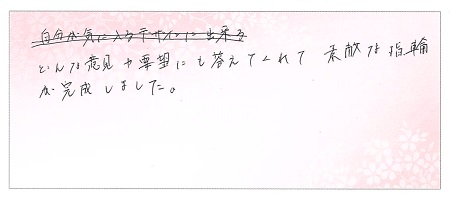 自分が気に入るデザインに出来る
どんな意見や要望にも答えてくれて 素敵な指輪
が完成しました。